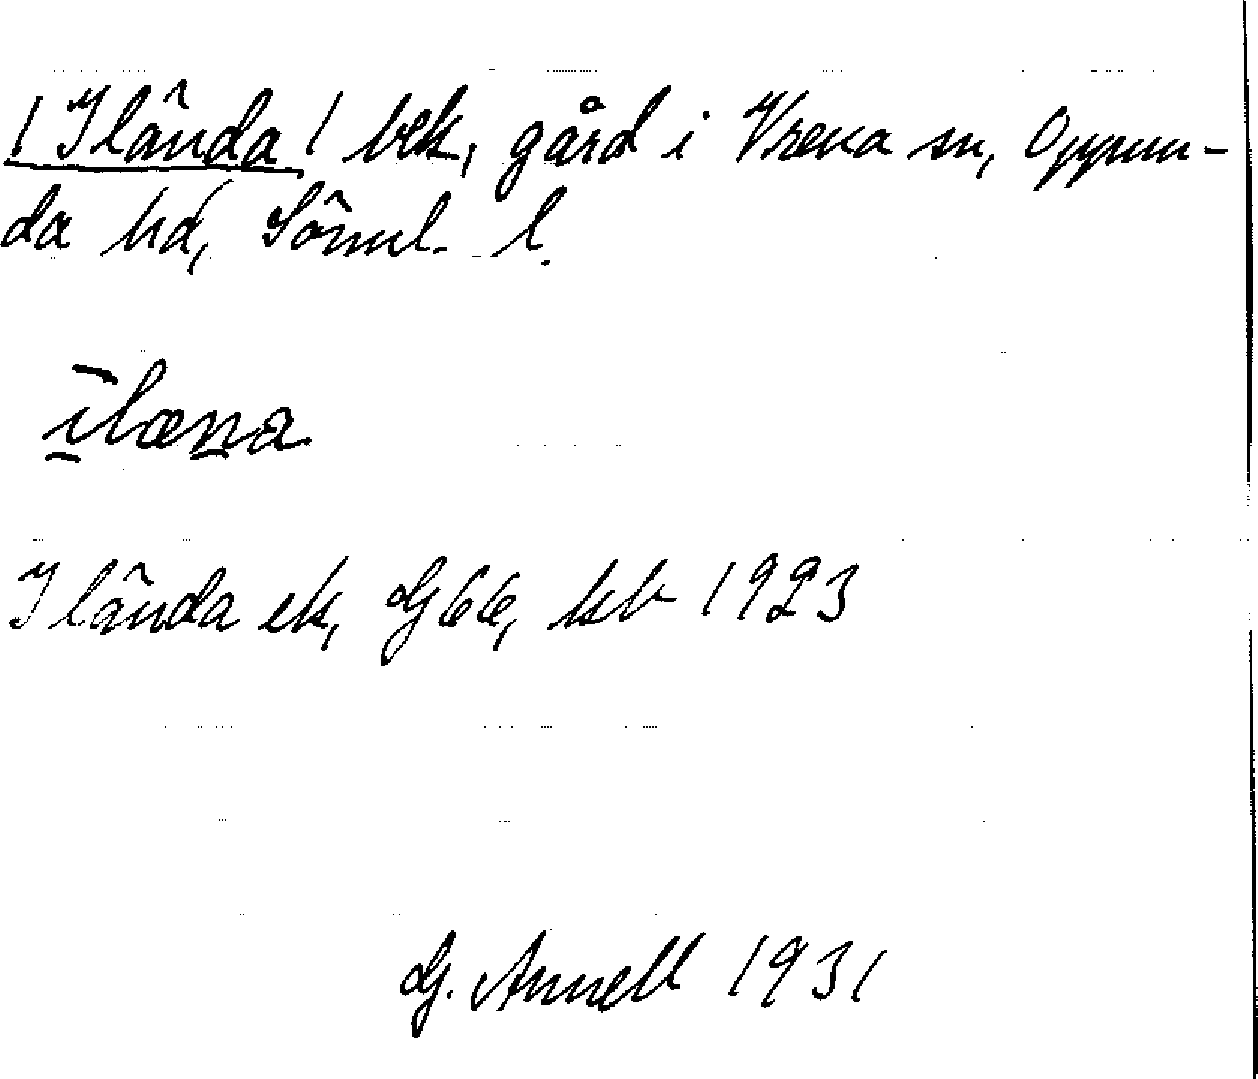 /Ilända/ bek, gård i Vrena sn, Oppun-
da hd, Söml. l.
ilæna
Ilända ek, G66, kb 1923
G. Annell 1931